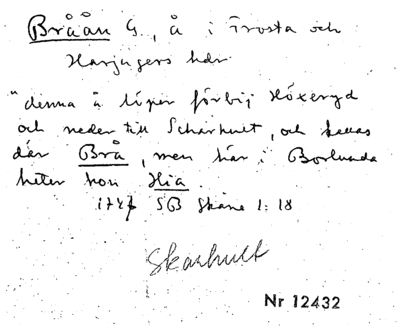 Bråån G, å i Frosta och
Harjagers hdr
"denna å löper förbij Höxeryd
och neder till Skarhult, och kallas
där Brå, men här i Borlunda
heter hon Hia.
1747 SB Skåne 1: 18
Skarhult
Nr 12432